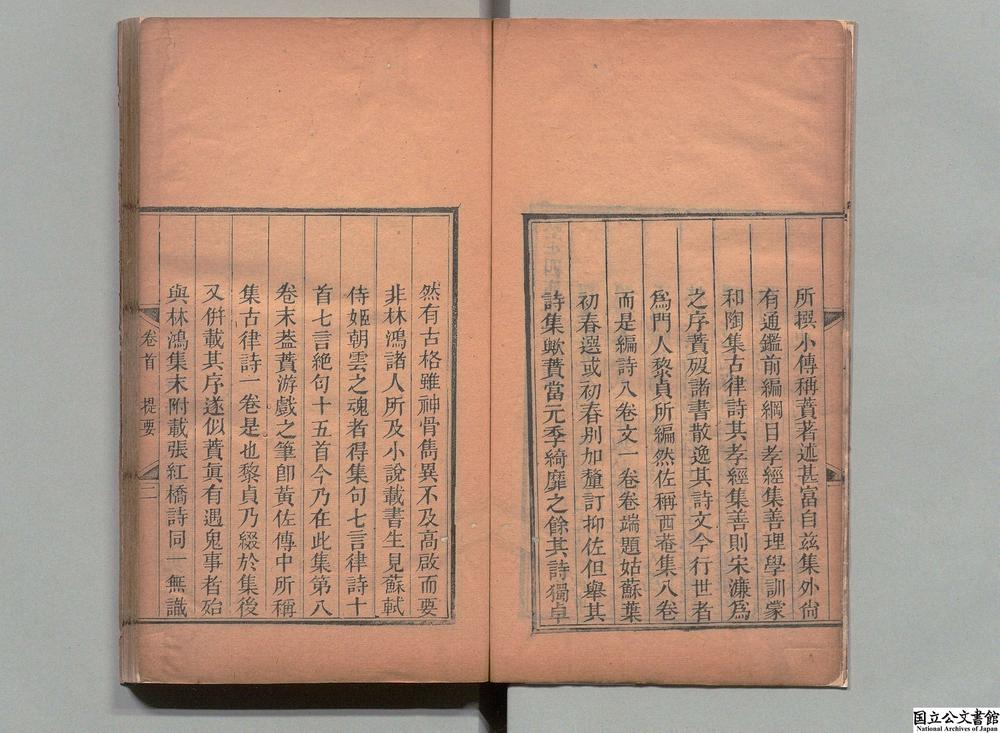 所撰小傳稱蕡著述甚富自茲集外尙
有通鑑前編綱目孝經集善理學訓蒙
和陶集古律詩其孝經集善則宋濂爲
之序蕡歿諸書散逸其詩文今行世者
爲門人黎貞所編然佐稱西菴集八卷
而是編詩八卷文一卷卷端題姑蘇葉
初春選或初春别加釐訂抑佐但舉其
詩集歟蕡當元季綺靡之餘其詩獨卓
然有古格雖神骨雋異不及高啟而要
非林鴻諸人所及小說載書生見蘇軾
侍姬朝雲之魂者得集句七言律詩十
首七言絕句十五首今乃在此集第八
卷末葢蕡游戲之筆卽黃佐傳中所稱
集古律詩一卷是也黎貞乃綴於集後
又併載其序遂似蕡眞有遇鬼事者殆
與林鴻集末附載張紅橋詩同一無識
卷首 提要 二
国立公文書館
National Archives of Japan